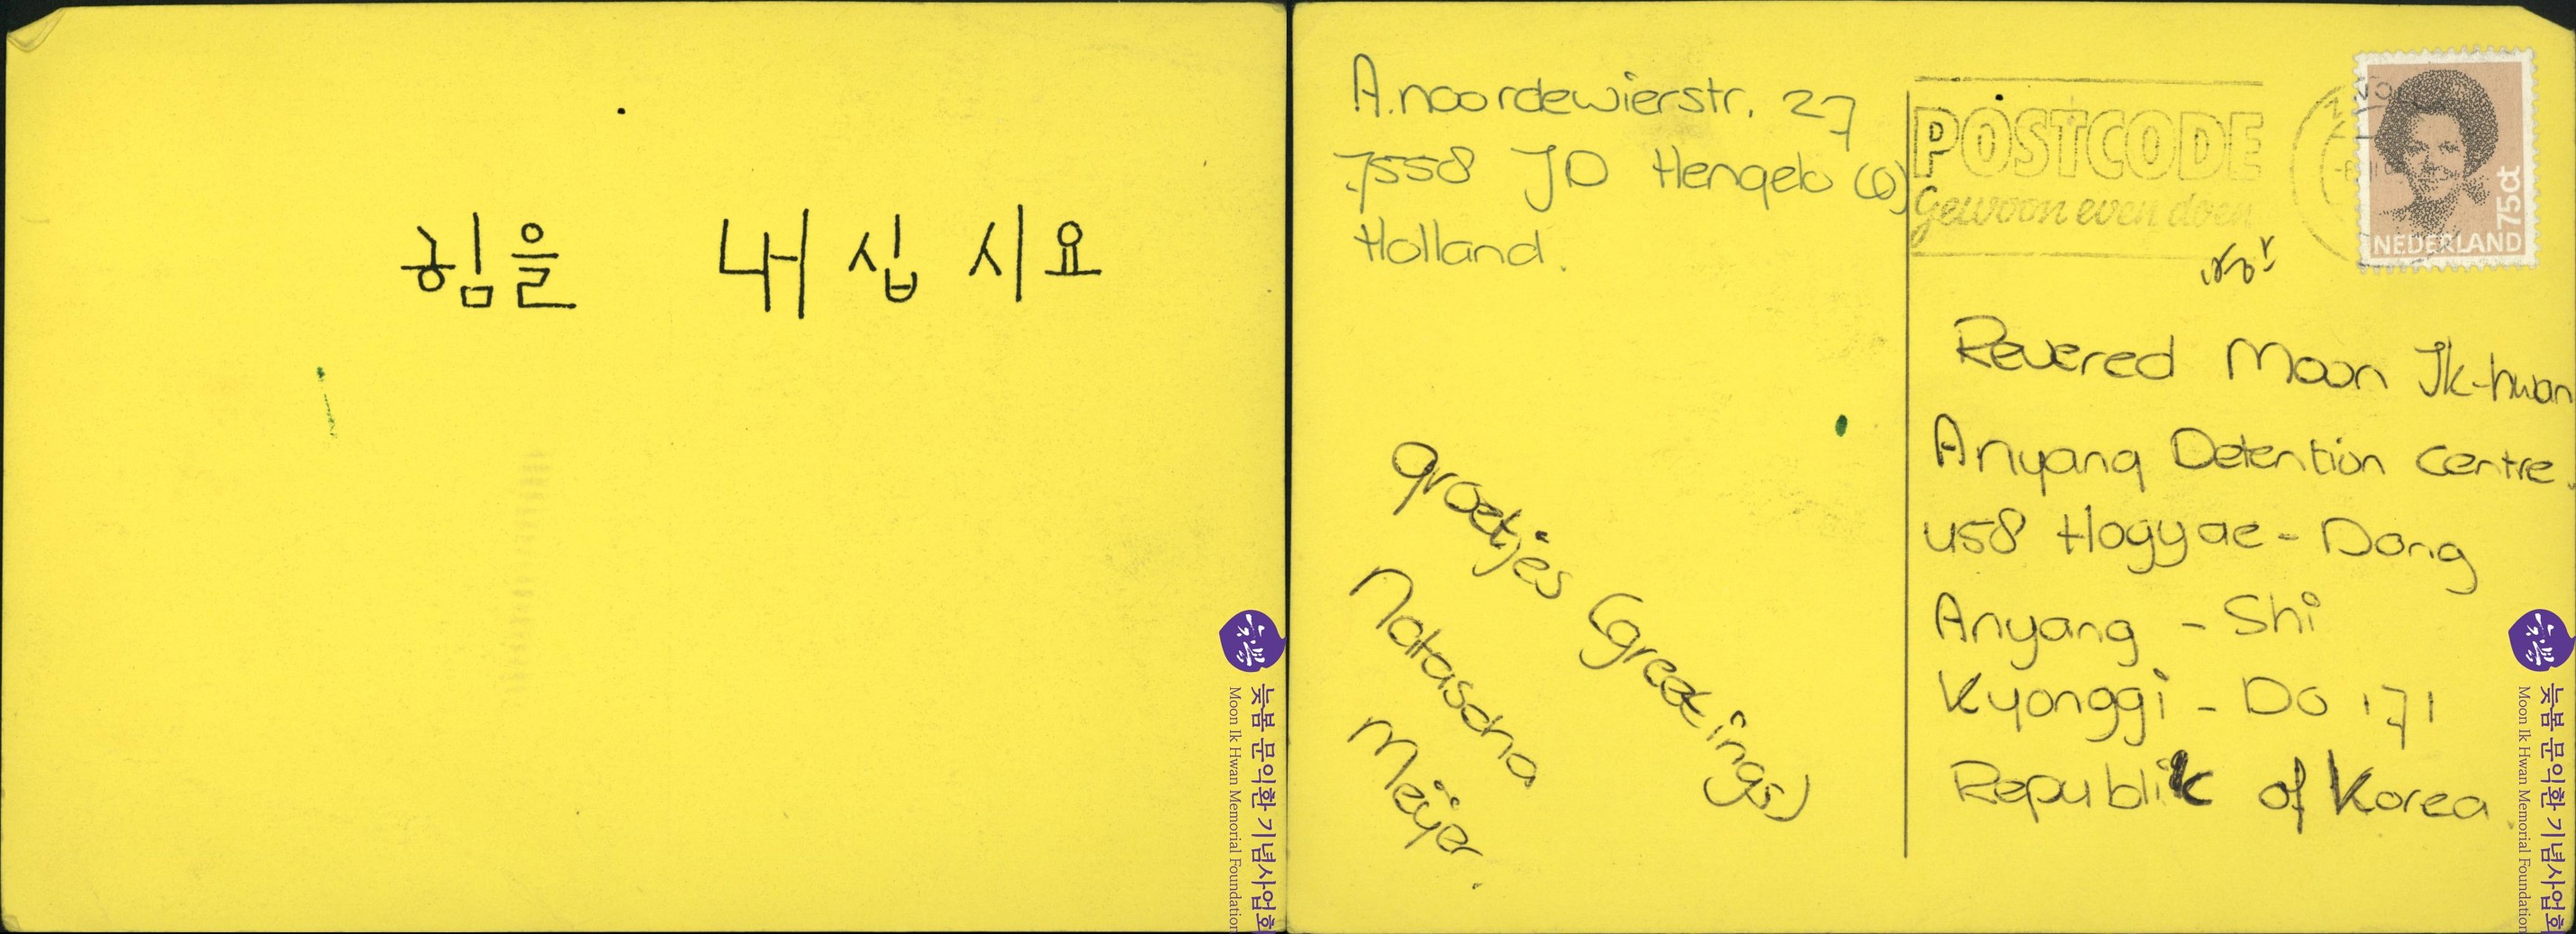 힘을 내십시요
늦봄 문익환 기념사업회
Moon Ik Hwan Memorial Foundation
A.noordewierstr. 27
7558 JD Hengelo (O)
Holland.
groetjes (greetings)
Natascha
Meijer.
POSTCODE
Gewoon even doen
75ct
NEDERLAND
Revered Moon Ik-hwan
Anyang Detention Centre.
458 Hogyae-Dong
Anyang - Shi
Kyonggi - Do 171
Republik of Korea
늦봄
늦봄 문익환 기념사업회
Moon Ik Hwan Memorial Foundation